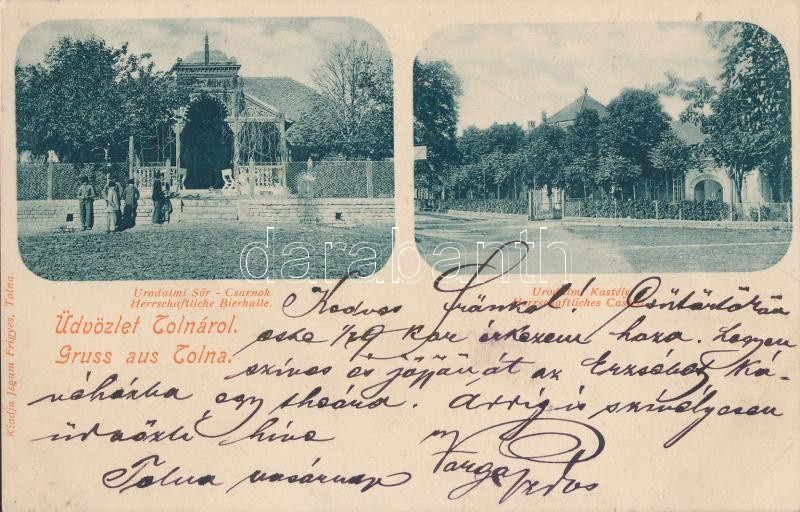 Urodalmi Sör - Csarnok.
Herrschaftliche Bierhalle.
Urodalmi Kastély
Herrschaftliches
Üdvözlet Tolnáról.
Gruss aus Tolna.
Kiadja Jsgum Frigyes, Tolna.
darabanth
Kedves Fránko! Csütörtökön
este 1/2 9 kor érkezem haza. Legyen
szíves és jöjjön át az Erzsébet ká-
véházba egy theára. Addig is szívélyesen
üdvözli híve
Varga
Tolna vasárnap